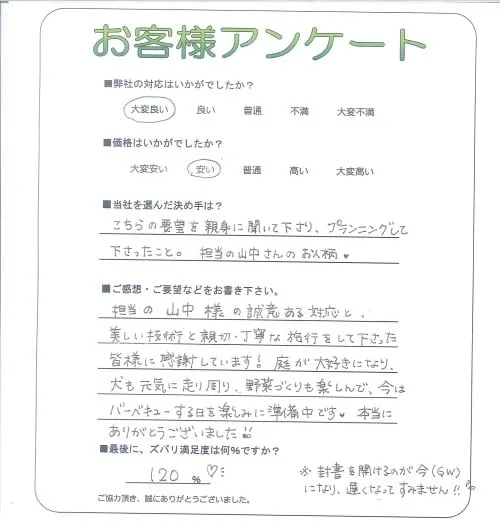 お客様アンケート
■弊社の対応はいかがでしたか？
大変良い 良い 普通 不満 大変不満
■価格はいかがでしたか？
大変安い 安い 普通 高い 大変高い
■当社を選んだ決め手は？
こちらの要望を親身に聞いて下さり、プランニングして
下さったこと。 担当の山中さんのお人柄♥
■ご感想・ご要望などをお書き下さい。
担当の 山中 様の誠意ある対応と、
美しい技術と親切・丁寧な施行をして下さった
皆様に感謝しています！ 庭が大好きになり、
犬も元気に走り周り、野菜づくりも楽しんで、今は
バーベキューする日を楽しみに準備中です♥ 本当に
ありがとうございました!!
■最後に、ズバリ満足度は何％ですか？
120 ％♡
※封書を開けるのが今（GW）
になり、遅くなってすみません!!
ご協力頂き、誠にありがとうございました。